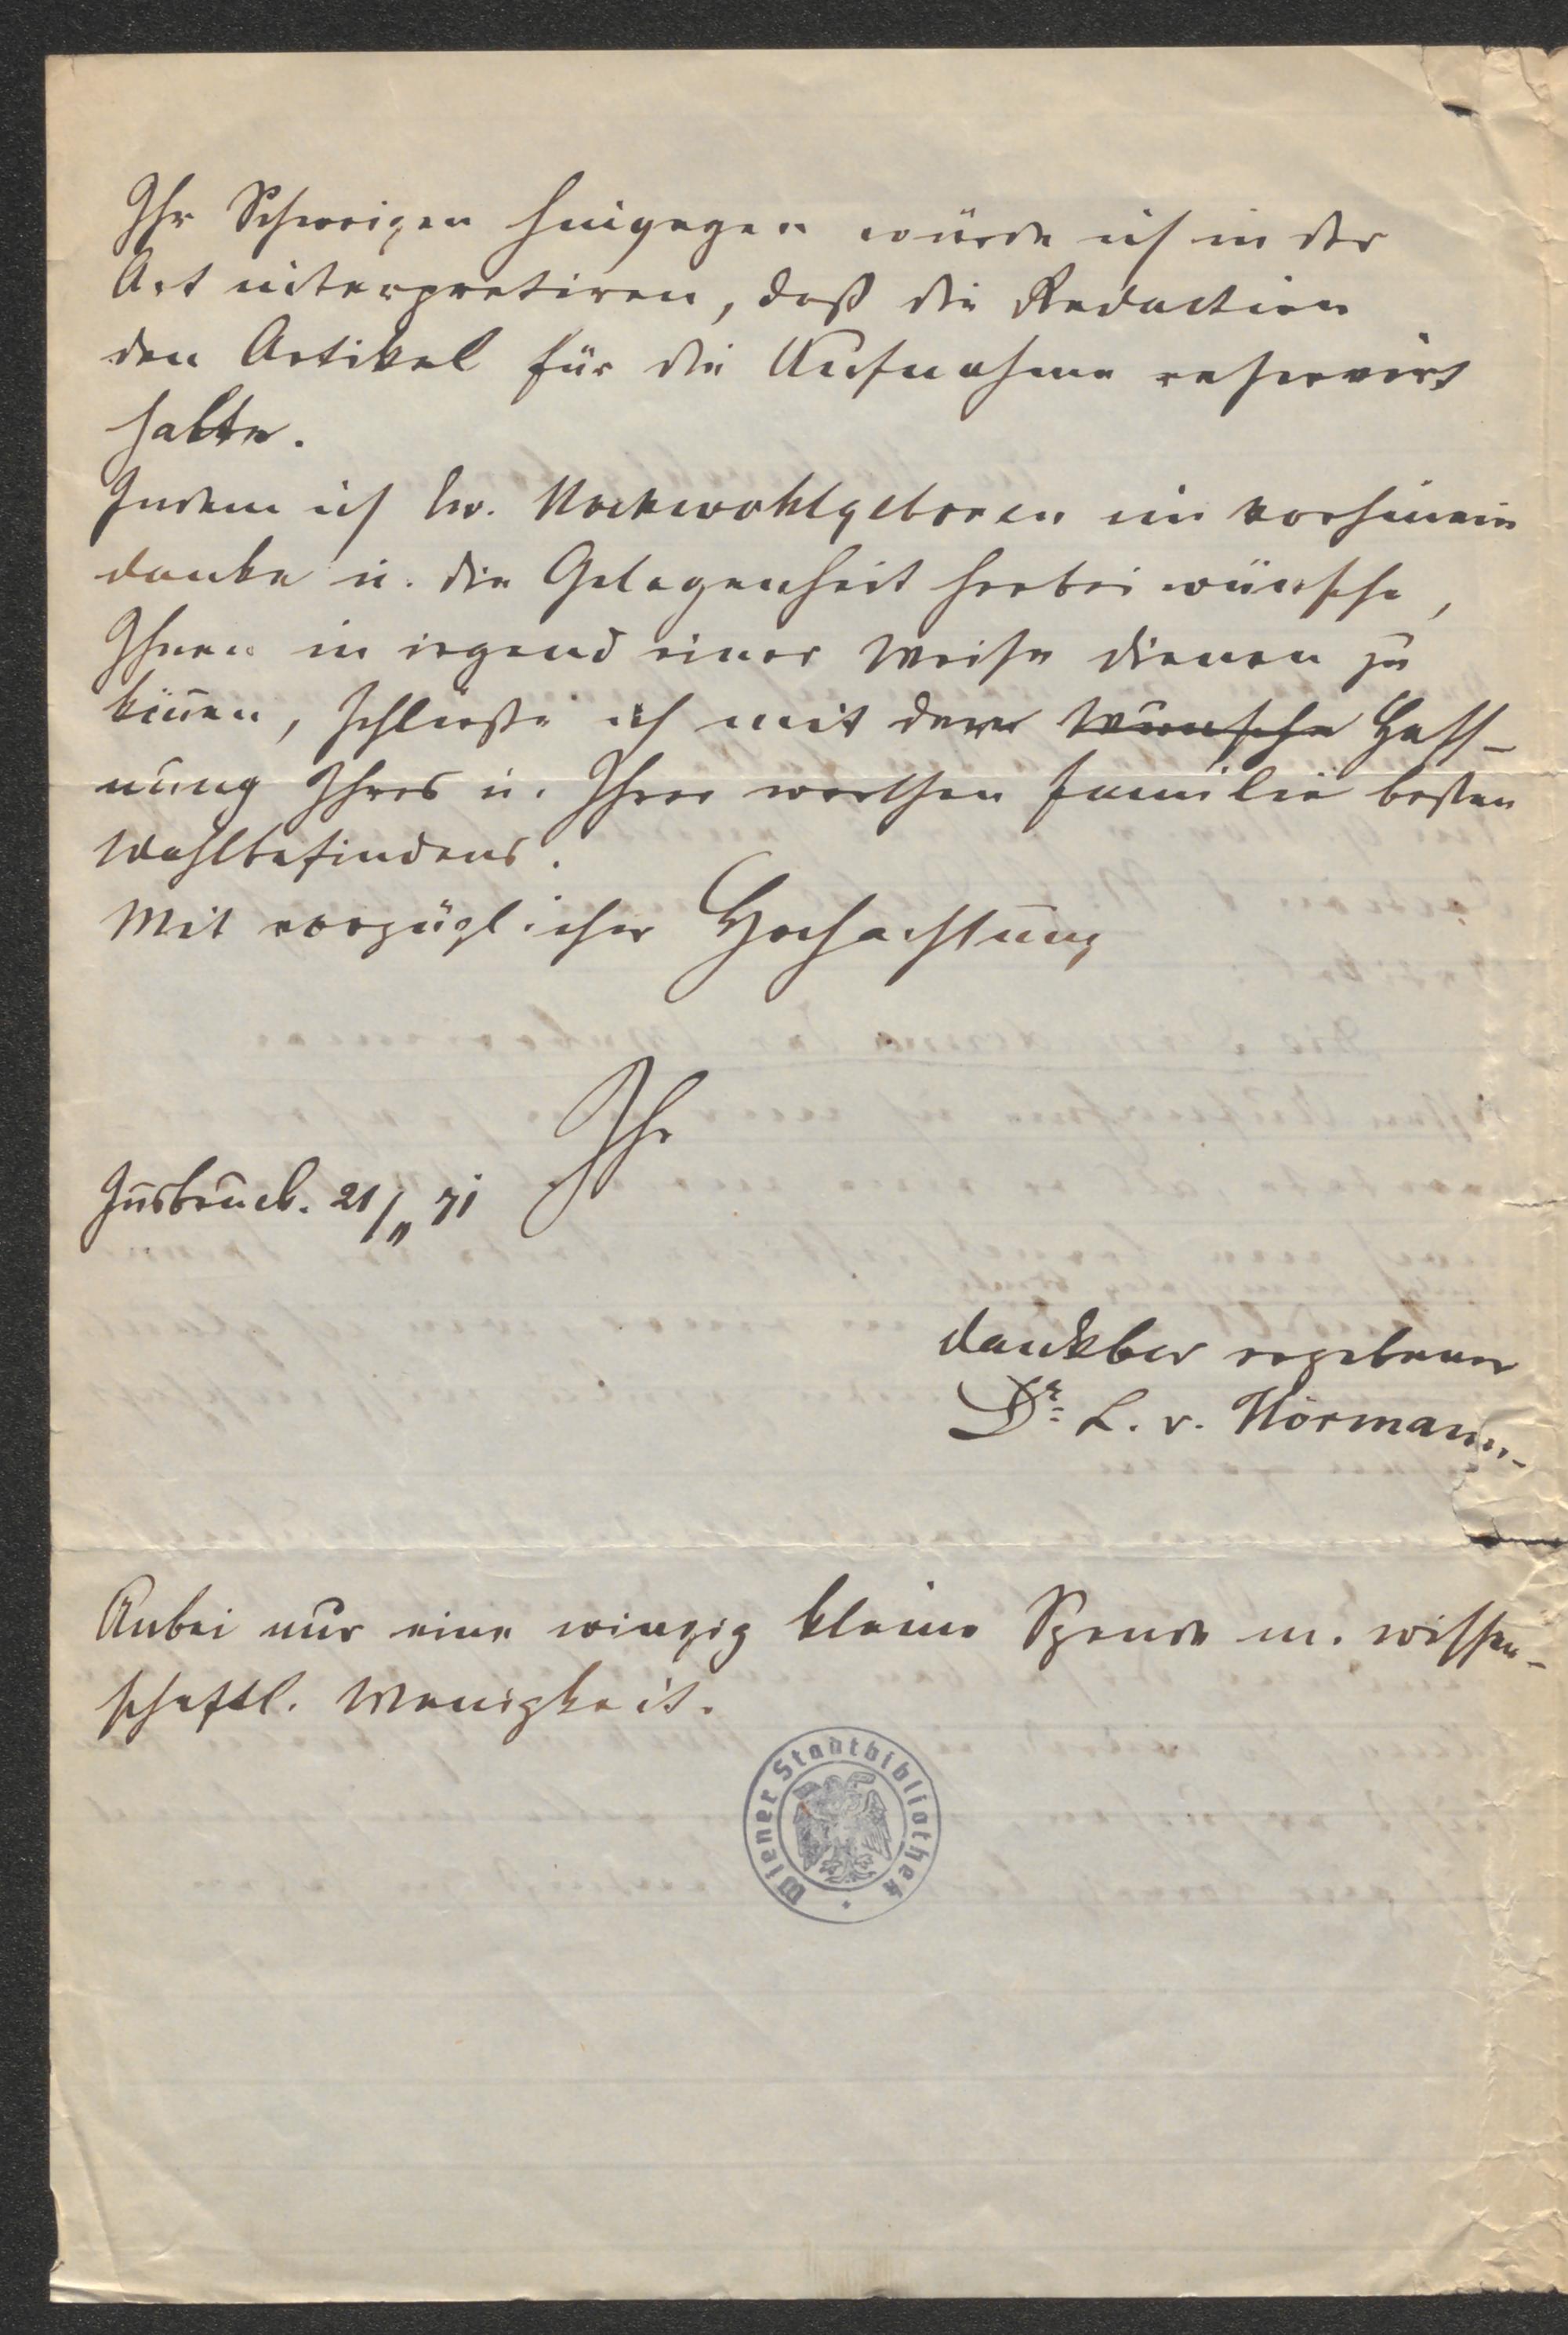 Ihr Schweigen hingegen würde ich in der
Art interpretiren, daß die Redaction
den Artikel für die Aufnahme reservirt
halte.
Indem ich Ew. Hochwohlgeboren im vorhinein
danke u. die Gelegenheit herbei wünsche,
Ihnen in irgend einer Weise dienen zu
können, schließe ich mit der Wunsche Hoff-
nung Ihres u. Ihrer werthen Familie besten
Wohlbefindens.
Mit vorzüglicher Hochachtung
Ihr
Insbruck. 21/11 71
dankbar ergebener
Dr. L. v. Hörmann.
Anbei nur eine winzig kleine Spende m. wissen-
schaftl. Wenigkeit.
Wiener Stadtbibliothek